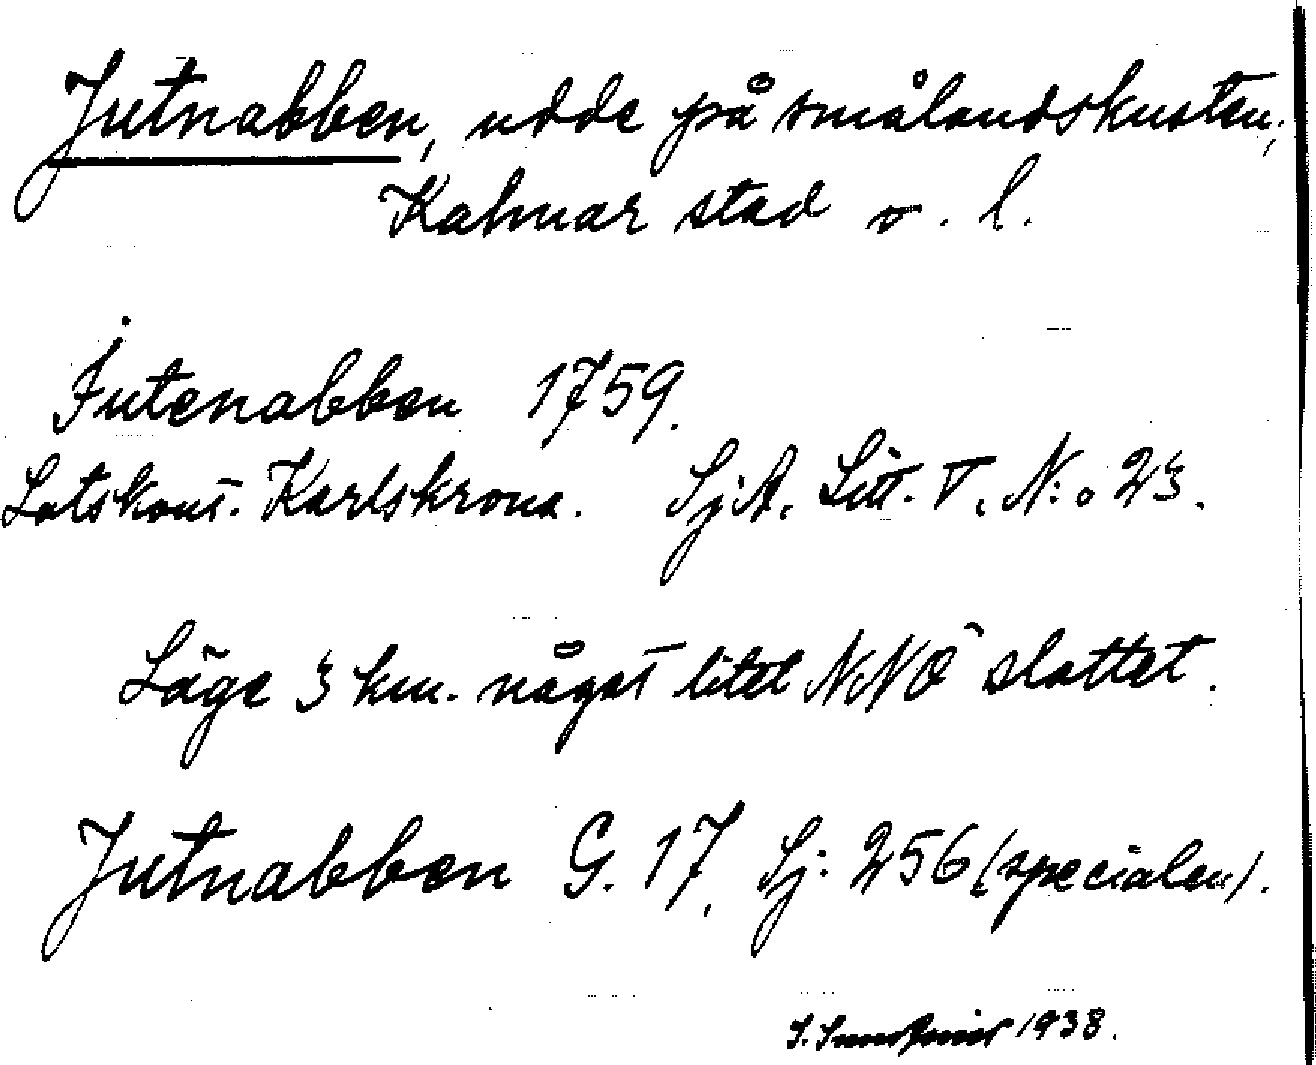 Jutnabben, udde på smålandskusten,
Kalmar stad o. l.
Jutenabben 1759.
Lotskont. Karlskrona. Sj.A. Litt. V. N:o 23.
Läge 3 km. något litet NNÖ slottet.
Jutnabben G. 17, Sj: 256 (specialen).
1938.